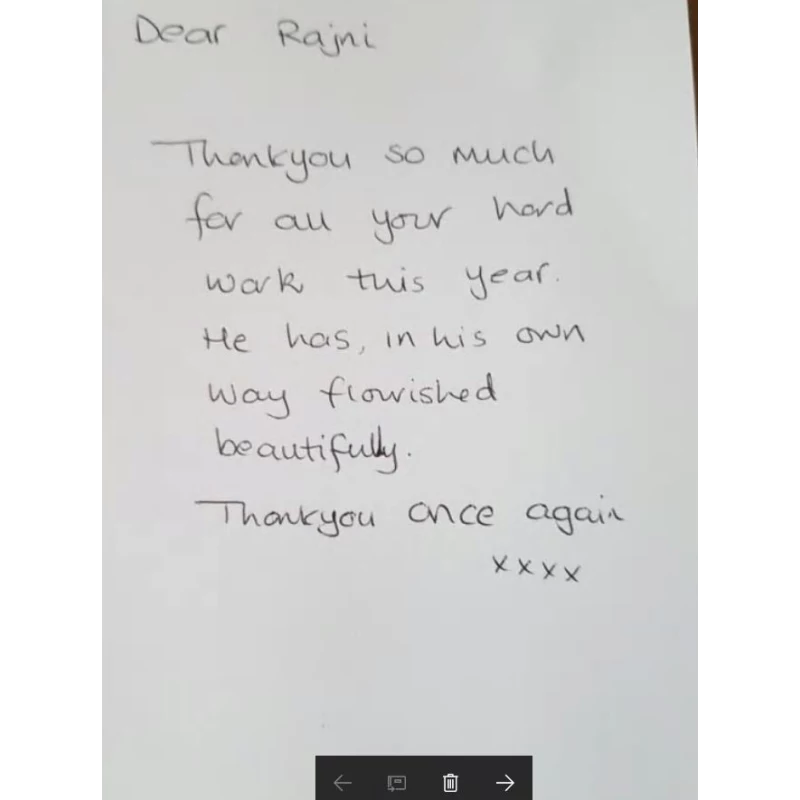 Dear Rajni
Thankyou so much
for all your hard
work this year.
He has, in his own
way flourished
beautifully.
Thankyou once again
xxxx